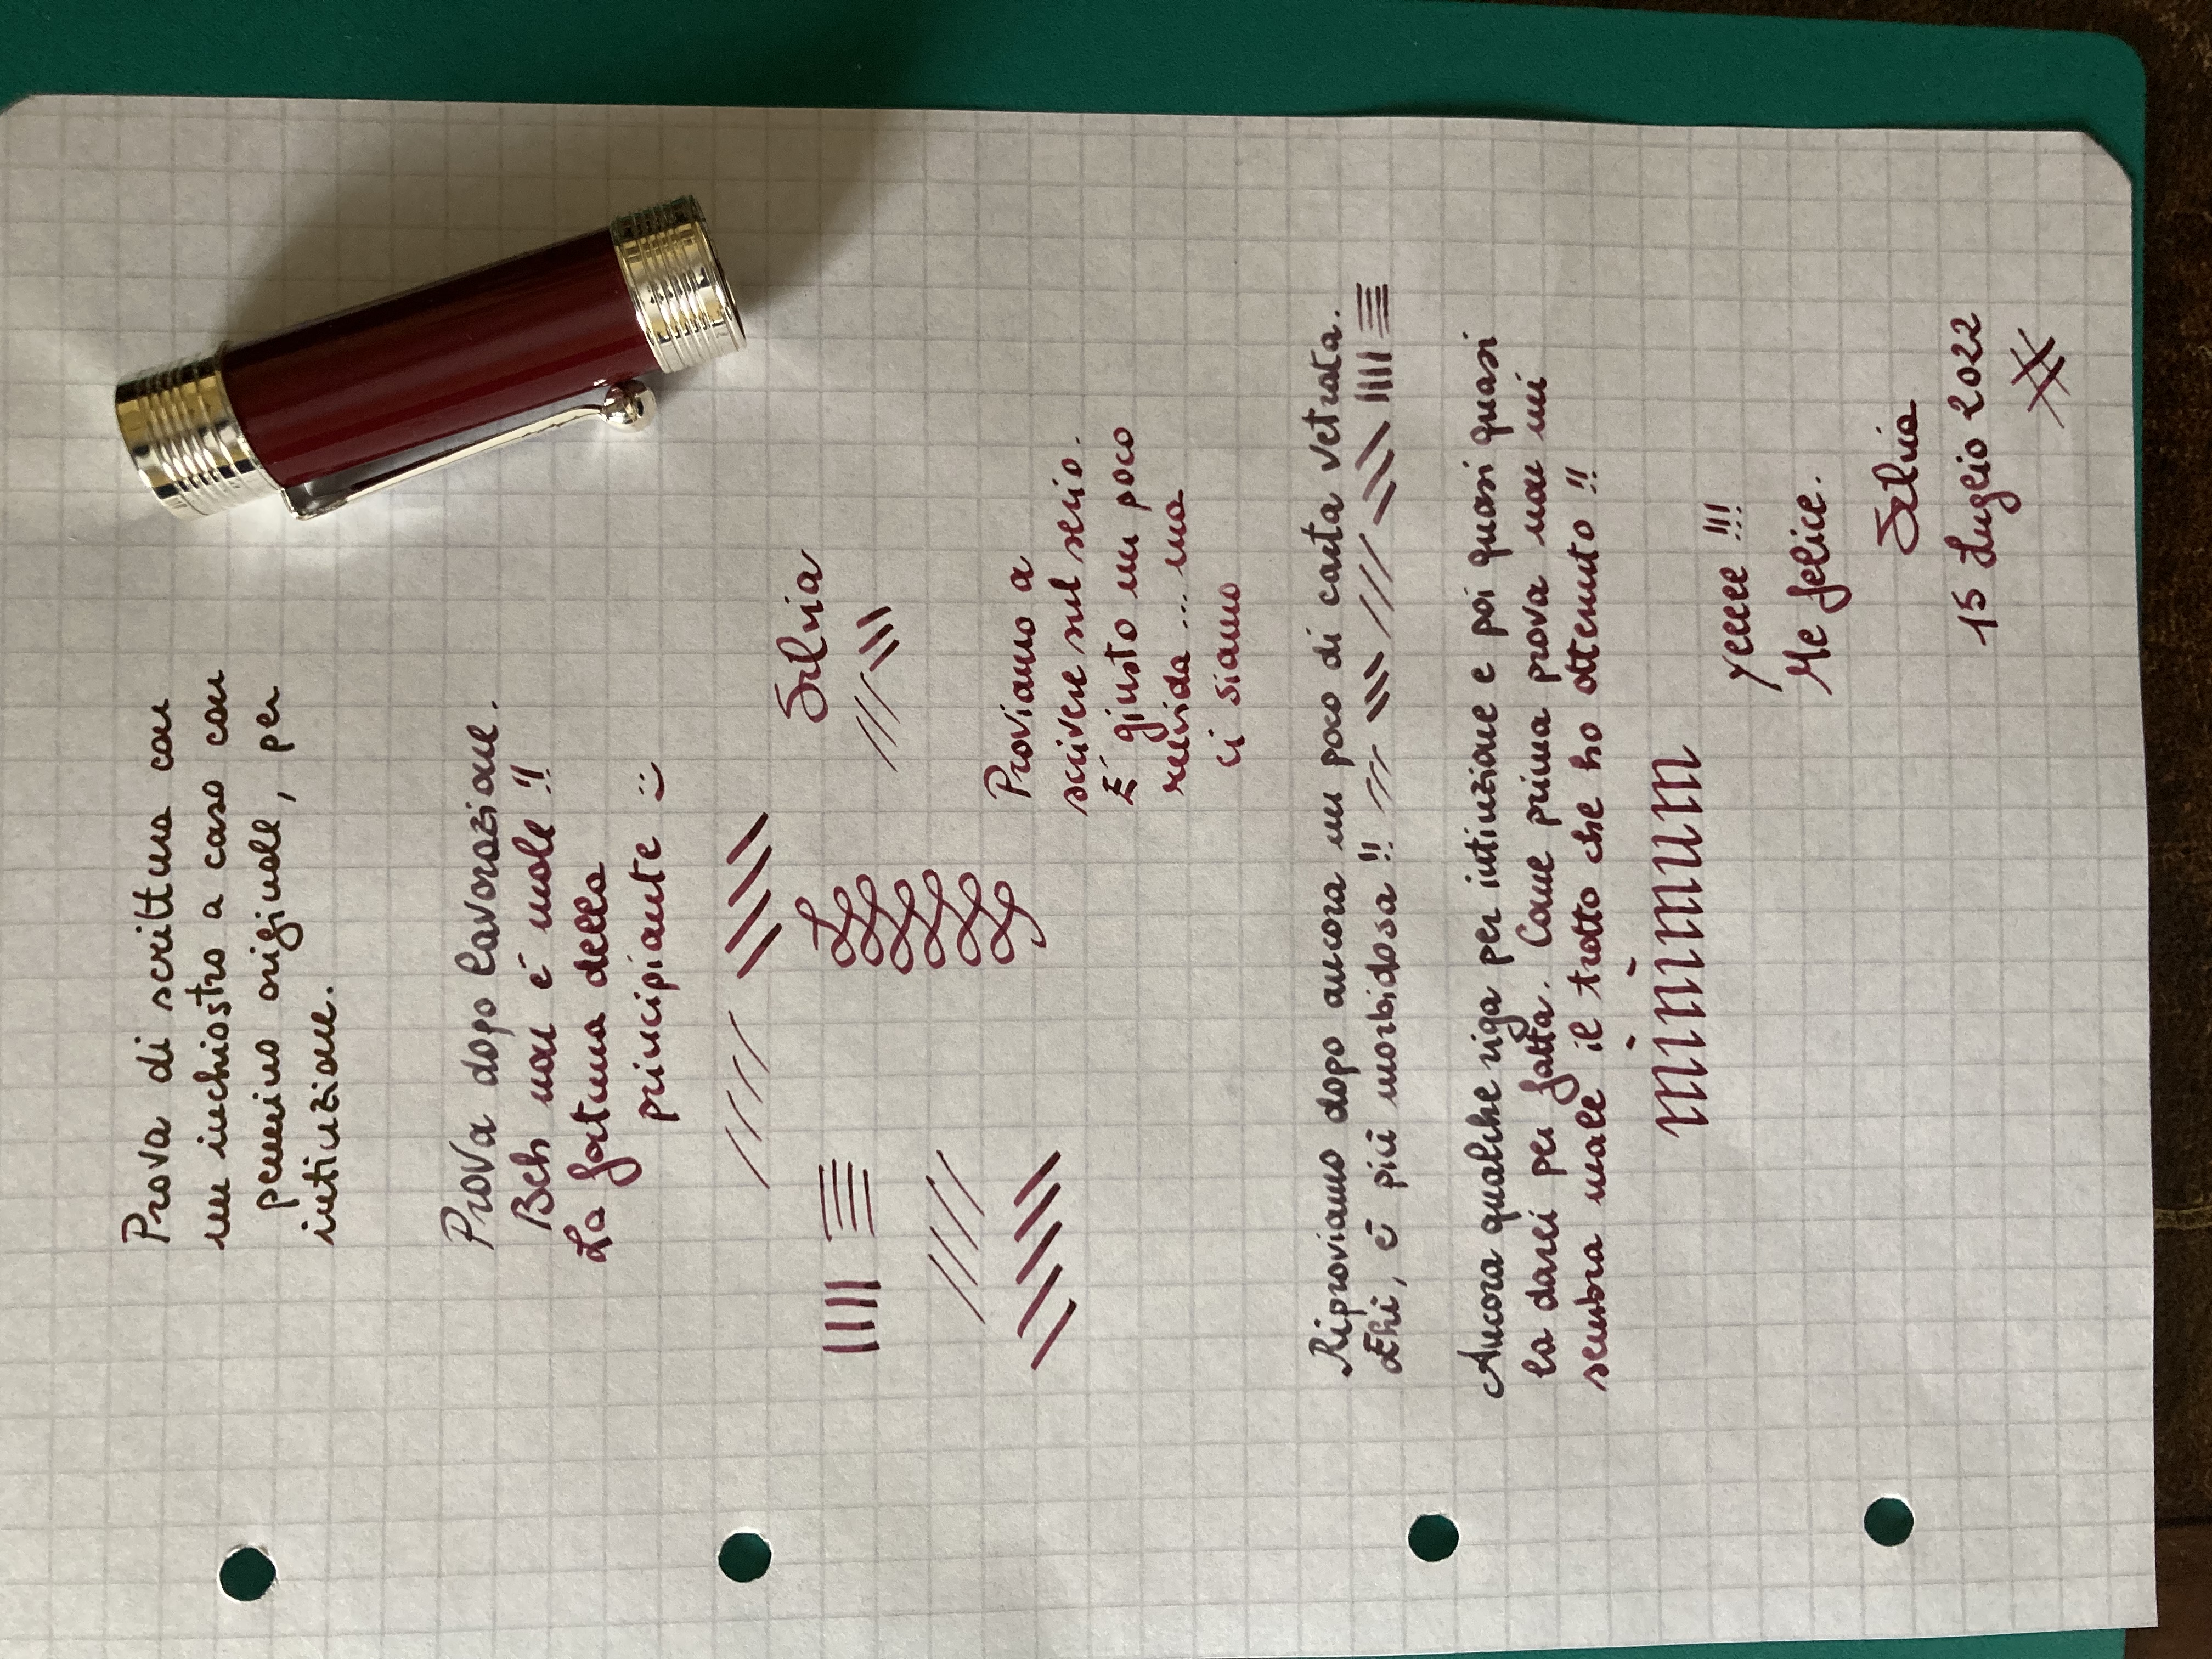 Prova di scrittura con
un inchiostro a caso con
pennino originale, per
intinzione.
Prova dopo lavorazione.
Beh non è male!!
La fortuna della
principiante :)
Silvia
Proviamo a
scrivere sul serio.
È giusto un poco
ruvida... ma
ci siamo
Riproviamo dopo ancora un poco di carta vetrata.
Ehi, è più morbidosa!!
Ancora qualche riga per intinzione e poi quasi quasi
la darei per fatta. Come prima prova non mi
sembra male il tratto che ho ottenuto!!
minimum
yeeee!!!
Me felice.
Silvia
15 Luglio 2022